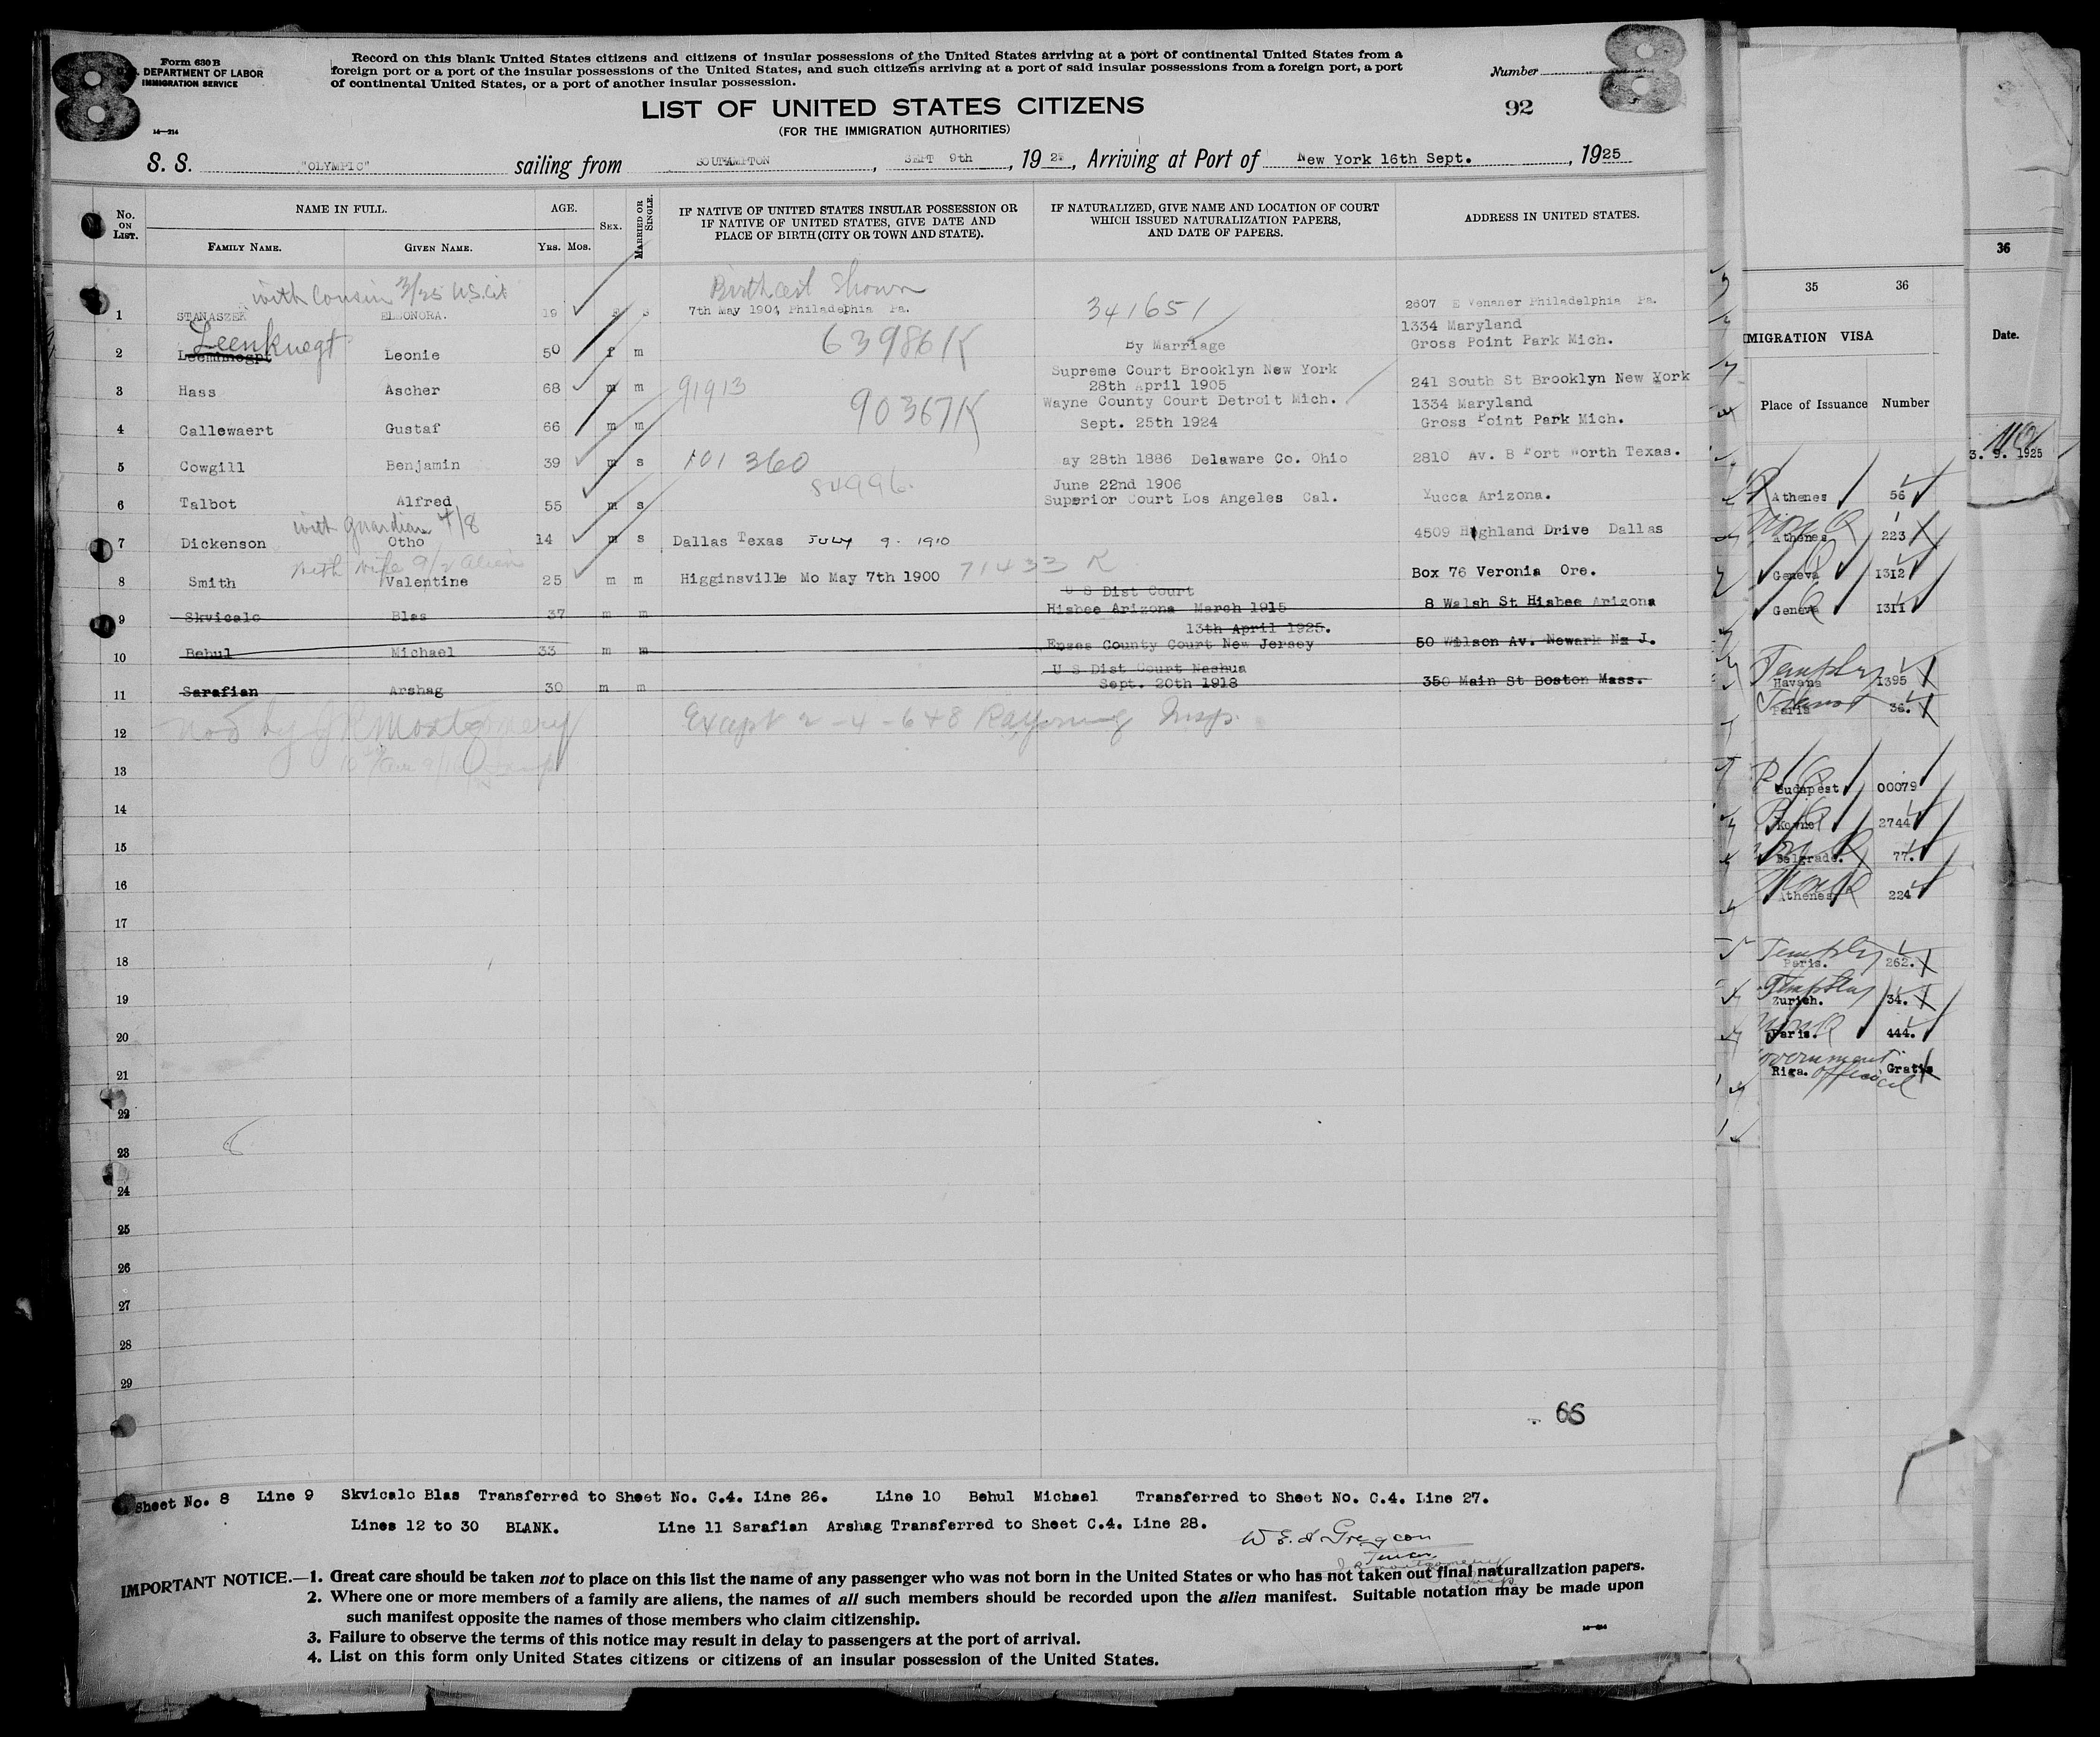 8
8
Form 630 B
DEPARTMENT OF LABOR
IMMIGRATION SERVICE
14—214
Record on this blank United States citizens and citizens of insular possessions of the United States arriving at a port of continental United States from a
foreign port or a port of the insular possessions of the United States, and such citizens arriving at a port of said insular possessions from a foreign port, a port
of continental United States, or a port of another insular possession.
Number
LIST OF UNITED STATES CITIZENS
92
(FOR THE IMMIGRATION AUTHORITIES)
S. S. "OLYMPIC" sailing from SOUTHAMPTON, SEPT 9th, 19 25, Arriving at Port of New York 16th Sept., 1925
No. ON LIST. NAME IN FULL. FAMILY NAME. GIVEN NAME. AGE. YRS. MOS. SEX. MARRIED OR SINGLE. IF NATIVE OF UNITED STATES INSULAR POSSESSION OR IF NATIVE OF UNITED STATES, GIVE DATE AND PLACE OF BIRTH (CITY OR TOWN AND STATE). IF NATURALIZED, GIVE NAME AND LOCATION OF COURT WHICH ISSUED NATURALIZATION PAPERS, AND DATE OF PAPERS. ADDRESS IN UNITED STATES.
with Cousin 3/25 U.S. Cit Birth cert Shown
1 STANASZEK ELEONORA. 19 s 7th May 1904 Philadelphia Pa. 341651 2607 E Venaner Philadelphia Pa.
Leenknegt 1334 Maryland
2 Leonie 50 f m 63986K By Marriage Gross Point Park Mich.
Supreme Court Brooklyn New York
3 Hass Ascher 68 m m 91913 28th April 1905 241 South St Brooklyn New York
Wayne County Court Detroit Mich. 1334 Maryland
4 Callewaert Gustaf 66 m m 90367K Sept. 25th 1924 Gross Point Park Mich.
5 Cowgill Benjamin 39 m s 101360 ay 28th 1886 Delaware Co. Ohio 2810 Av. B Fort Worth Texas.
84996. June 22nd 1906
6 Talbot Alfred 55 m s Superior Court Los Angeles Cal. Yucca Arizona.
with guardian 4/8
7 Dickenson Otho 14 m s Dallas Texas JULY 9. 1910 4509 Highland Drive Dallas
with wife 9/2 alien
8 Smith Valentine 25 m m Higginsville Mo May 7th 1900 71433 K Box 76 Veronia Ore.
U S Dist Court
9 Skvicalo Blas 37 m m Hisbee Arizona March 1915 8 Walsh St Hisbee Arizona
13th April 1925.
10 Behul Michael 33 m m Essex County Court New Jersey 50 Wilson Av. Newark N. J.
U S Dist Court Nashua
11 Sarafian Arshag 30 m m Sept. 20th 1918 350 Main St Boston Mass.
12 by J R Montgomery Except 2-4-6+8 Insp.
13
14
15
16
17
18
19
20
21
22
23
24
25
26
27
28
29
66
Sheet No. 8 Line 9 Skvicalo Blas Transferred to Sheet No. C.4. Line 26. Line 10 Behul Michael Transferred to Sheet No. C.4. Line 27.
Lines 12 to 30 BLANK. Line 11 Sarafian Arshag Transferred to Sheet C.4. Line 28.
IMPORTANT NOTICE.—1. Great care should be taken not to place on this list the name of any passenger who was not born in the United States or who has not taken out final naturalization papers.
2. Where one or more members of a family are aliens, the names of all such members should be recorded upon the alien manifest. Suitable notation may be made upon
such manifest opposite the names of those members who claim citizenship.
3. Failure to observe the terms of this notice may result in delay to passengers at the port of arrival.
4. List on this form only United States citizens or citizens of an insular possession of the United States.
35 36
MIGRATION VISA
Place of Issuance Number
Athenes 56
Athenes 223
Geneva 1312
Geneva 1311
Havana 1395
Paris 36.
Budapest 00079
Kovno 2744
Belgrade. 77.
Athenes 224
Paris. 262.
Zurich. 34.
Paris. 444.
Government
Riga. Gratis
official
36
Date.
3. 9. 1925